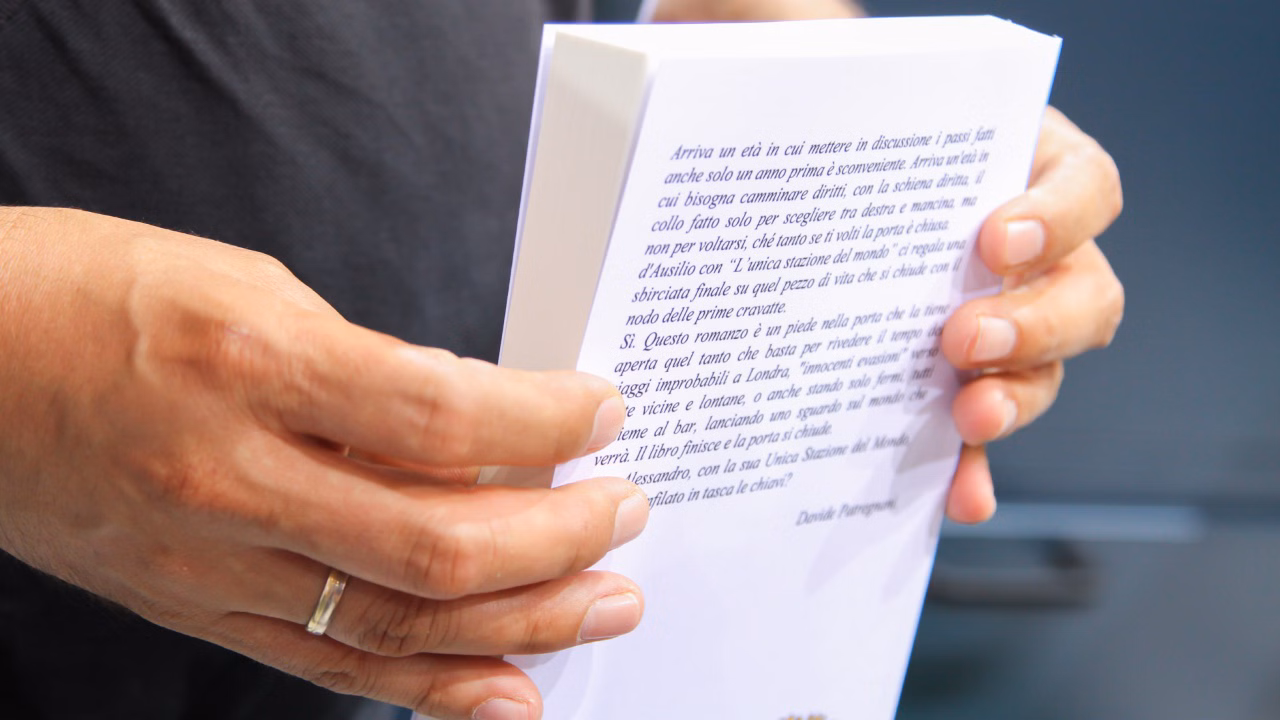 Arriva un età in cui mettere in discussione i passi fatti
anche solo un anno prima è sconveniente. Arriva un'età in
cui bisogna camminare diritti, con la schiena diritta, il
collo fatto solo per scegliere tra destra e mancina, ma
non per voltarsi, ché tanto se ti volti la porta è chiusa.
d'Ausilio con “L'unica stazione del mondo” ci regala una
sbirciata finale su quel pezzo di vita che si chiude con il
nodo delle prime cravatte.
Sì. Questo romanzo è un piede nella porta che la tiene
aperta quel tanto che basta per rivedere il tempo
iaggi improbabili a Londra, "innocenti evasioni"
te vicine e lontane, o anche stando solo fermi, tutti
ieme al bar, lanciando uno sguardo sul mondo che
verrà. Il libro finisce e la porta si chiude.
Alessandro, con la sua Unica Stazione del Mondo,
nfilato in tasca le chiavi?
Davide